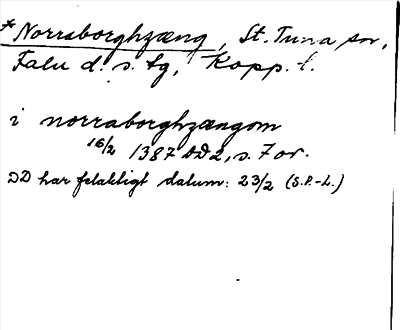 * Norraborghzæng, St. Tuna sn,
Falu d. s. tg, Kopp. l.
i norraborghzængom
16/2 1387 DD2, s. 7 or.
DD har felaktigt datum: 23/2 (S.P.-L.)